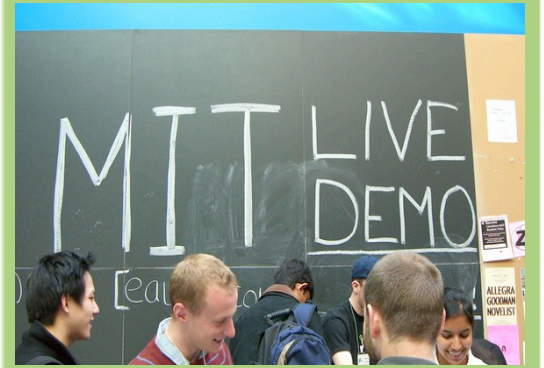 MIT LIVE
DEMO
ALLEGRA
GOODMAN
NOVELIST